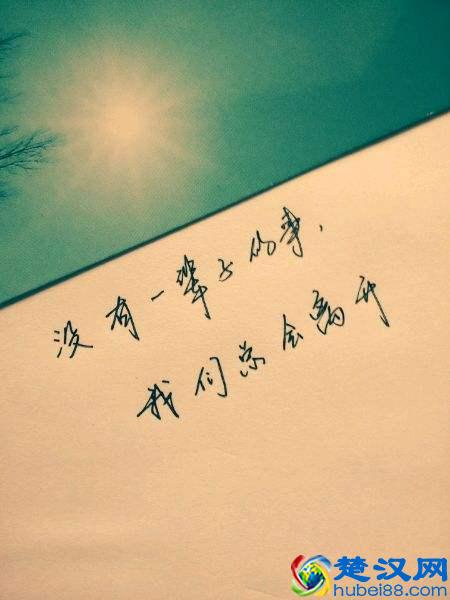 没有一辈子的事，
我们总会离开
楚汉网
hubei88.com